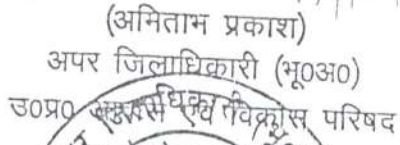 (अमिताभ प्रकाश)
अपर जिलाधिकारी (भू०अ०)
उ०प्र० आवास एवं विकास परिषद